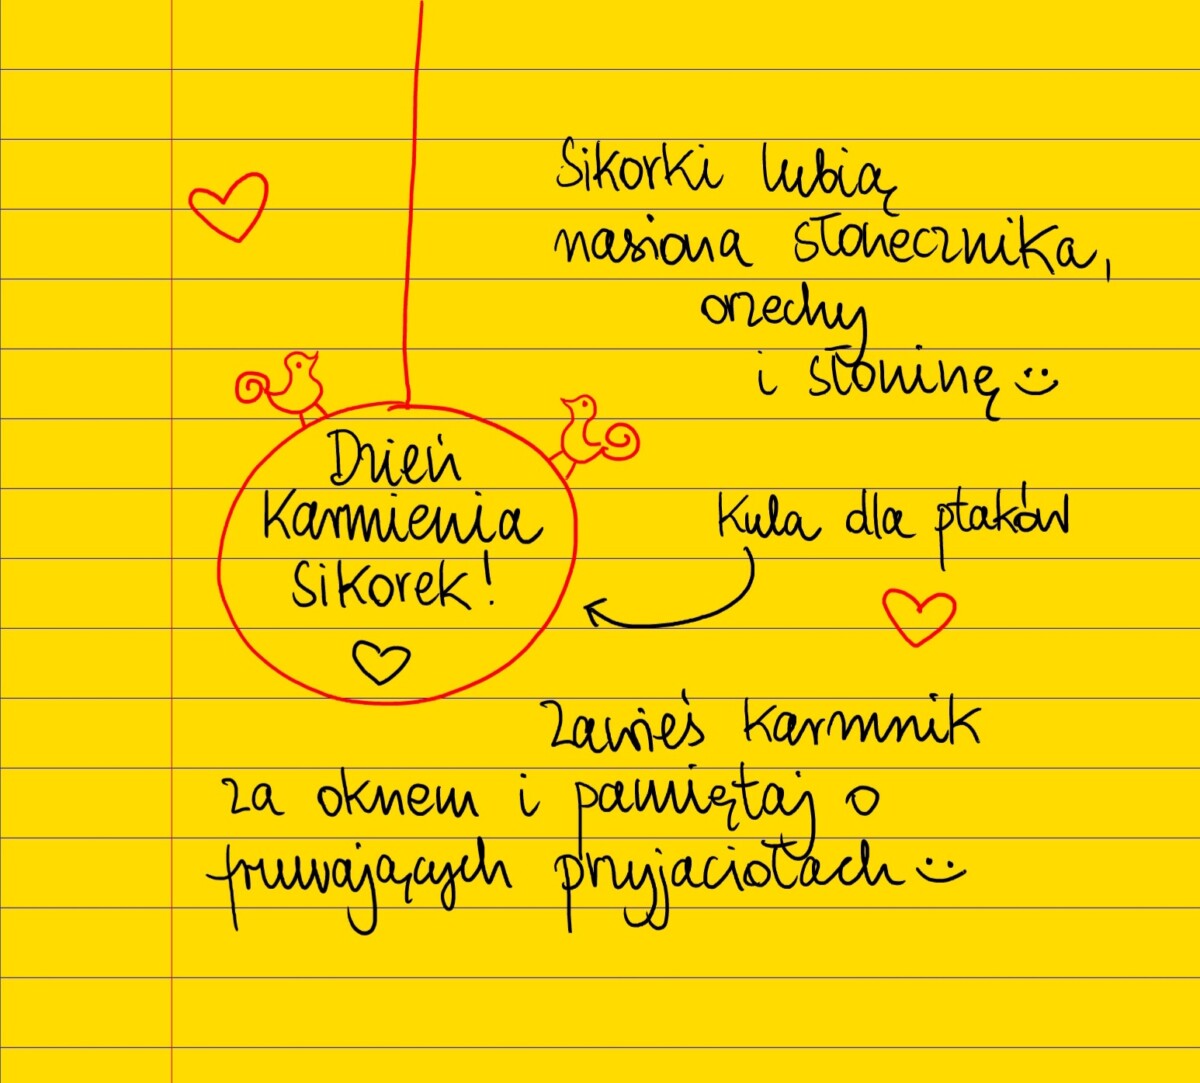 Sikorki lubią
nasiona słonecznika,
orzechy
i słoninę
Dzień
Karmienia
Sikorek!
Kula dla ptaków
Zawieś karmnik
za oknem i pamiętaj o
fruwających przyjaciołach